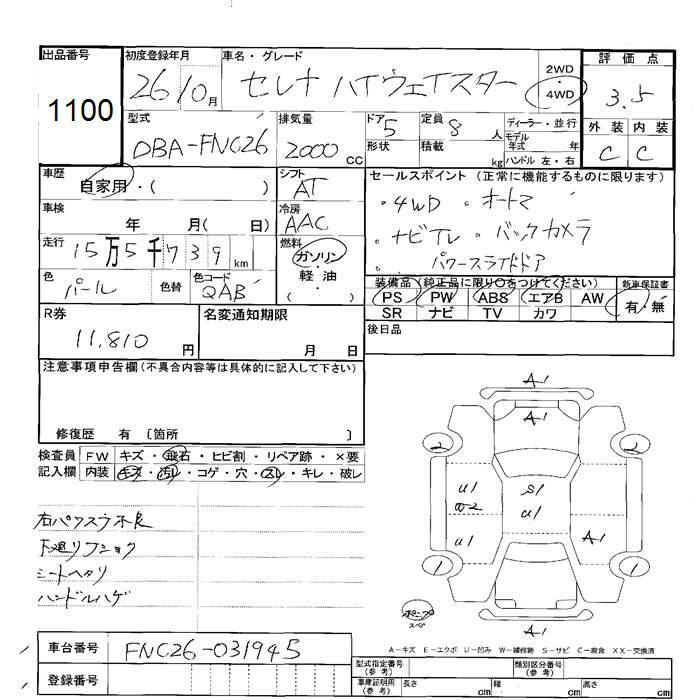 出品番号 初度登録年月 車名・グレード 2WD 評価点
1100 26/10月 セレナ ハイウェイスター 4WD 3.5
型式 排気量 ドア 5 定員 8 人 ディーラー・並行 外装 内装
DBA-FNC26 2000 CC 形状 積載 kg モデル年式 年 C C
ハンドル 左・右
車歴 自家用・( ) シフト AT セールスポイント (正常に機能するものに限ります)
車検 年 月( 日) 冷房 AAC ・4WD ・オートマ
走行 15万5千739 km 燃料 ガソリン ・ナビTV ・バックカメラ
軽・油 ・パワースライドドア
色 パール 色替 色コード QAB ( )
装備品 (純正品に限り○をつけてください) 新車保証書
PS PW ABS エアB AW 有・無
SR ナビ TV カワ
R券 名変通知期限 後日品
11,810 円 月 日
注意事項申告欄(不具合内容等は具体的に記入して下さい)
修復歴 有 〔箇所 〕
検査員 FW キズ・飛石・ヒビ割・リペア跡・×要
記入欄 内装 キズ・汚れ・コゲ・穴・スレ・キレ・破レ
右パワスラ不良
下廻りフショク
シートヘタリ
ハンドルハゲ
A-1
A-1
2 2
U1 S1
W-2 U1
U1 A-1
1 1
スペ
A-1
A-キズ E-エクボ U-凹み W-補修跡 S-サビ C-腐食 XX-交換済
車台番号 FNC26-031945
登録番号
型式指定番号(参考) 類別区分番号(参考)
車庫証明用(参考) 長さ cm 幅 cm 高さ cm